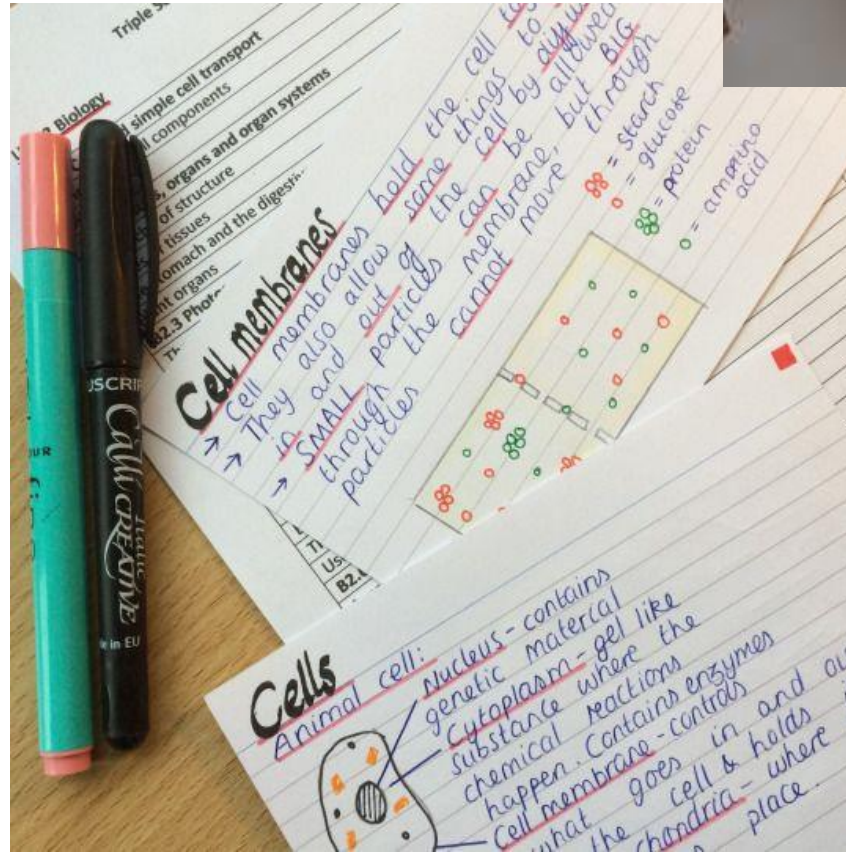 Triple S
Biology
simple cell transport
components
, organs and organ systems
of structure
tissues
stomach and the digesti
nt organs
B2.3 Phot
Cell membranes
→ Cell membranes hold the cell to
→ They also allow some things to
in and out of the cell by diffu
→ SMALL particles can be allowed
through the membrane, but BIG
particles cannot move through
= starch
= glucose
= protein
= amamino
acid
USCRIP
Italic
CalliCREATIVE
in EU
Us
B2.
Cells
Animal cell:
Nucleus - contains
genetic material
Cytoplasm - gel like
substance where the
chemical reactions
happen. Contains enzymes
Cell membrane - controls
what goes in and ou
the cell & holds i
chondria - where
place.